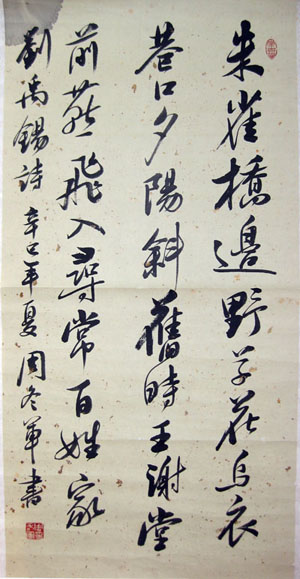 朱雀橋邊野草花烏衣
巷口夕陽斜舊時王謝堂
前燕飛入尋常百姓家
劉禹錫詩 辛巳年夏 周冬軍書